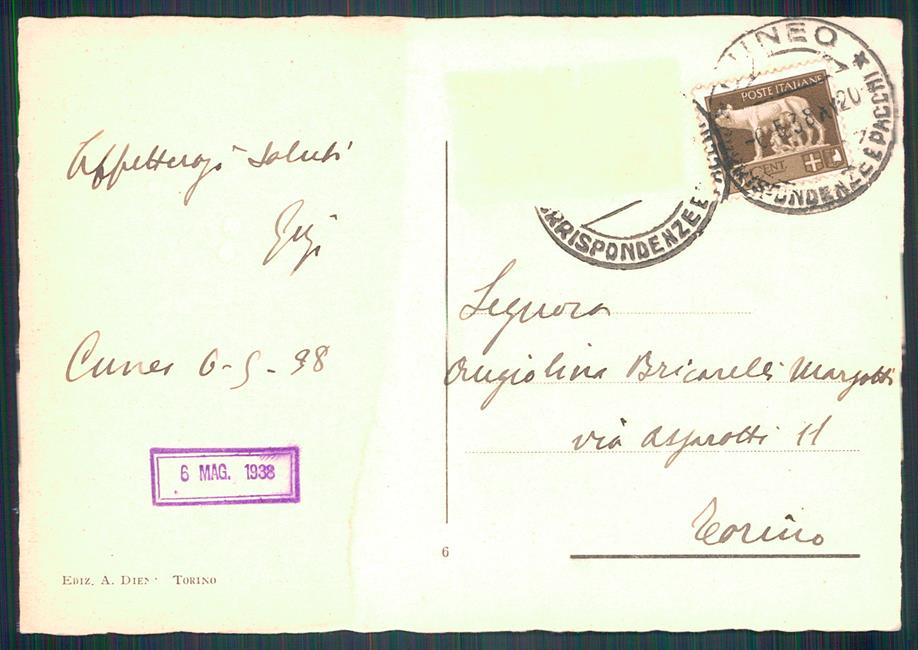 Affettuosi saluti
Gigi
Cuneo 6-5-38
6 MAG. 1938
EDIZ. A. TORINO
6
CUNEO
POSTE ITALIANE
-6.5.38
CENT.
CORRISPONDENZE E PACCHI
CORRISPONDENZE E
Signora
Angiolina Bricarelli Margotti
via Assarotti 11
Torino